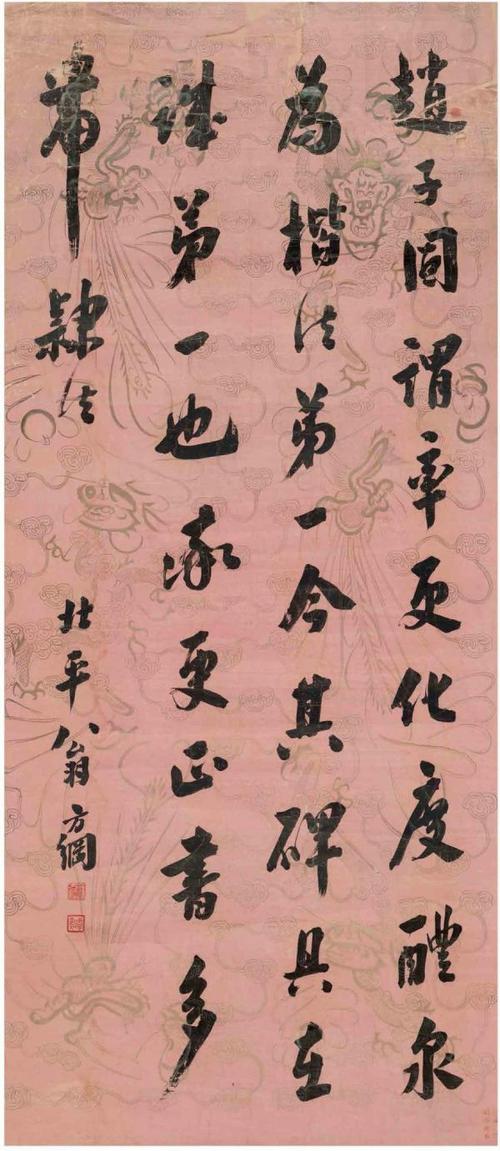 趙子固謂率更化度醴泉
為楷法弟一今其碑具在
誠弟一也率更正書多
帶隸法
北平翁方綱